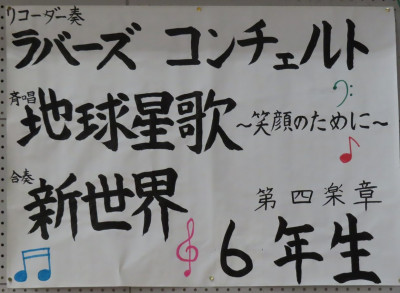 リコーダー奏
ラバーズ コンチェルト
斉唱
地球星歌 ～笑顔のために～
合奏
新世界 第四楽章
6年生